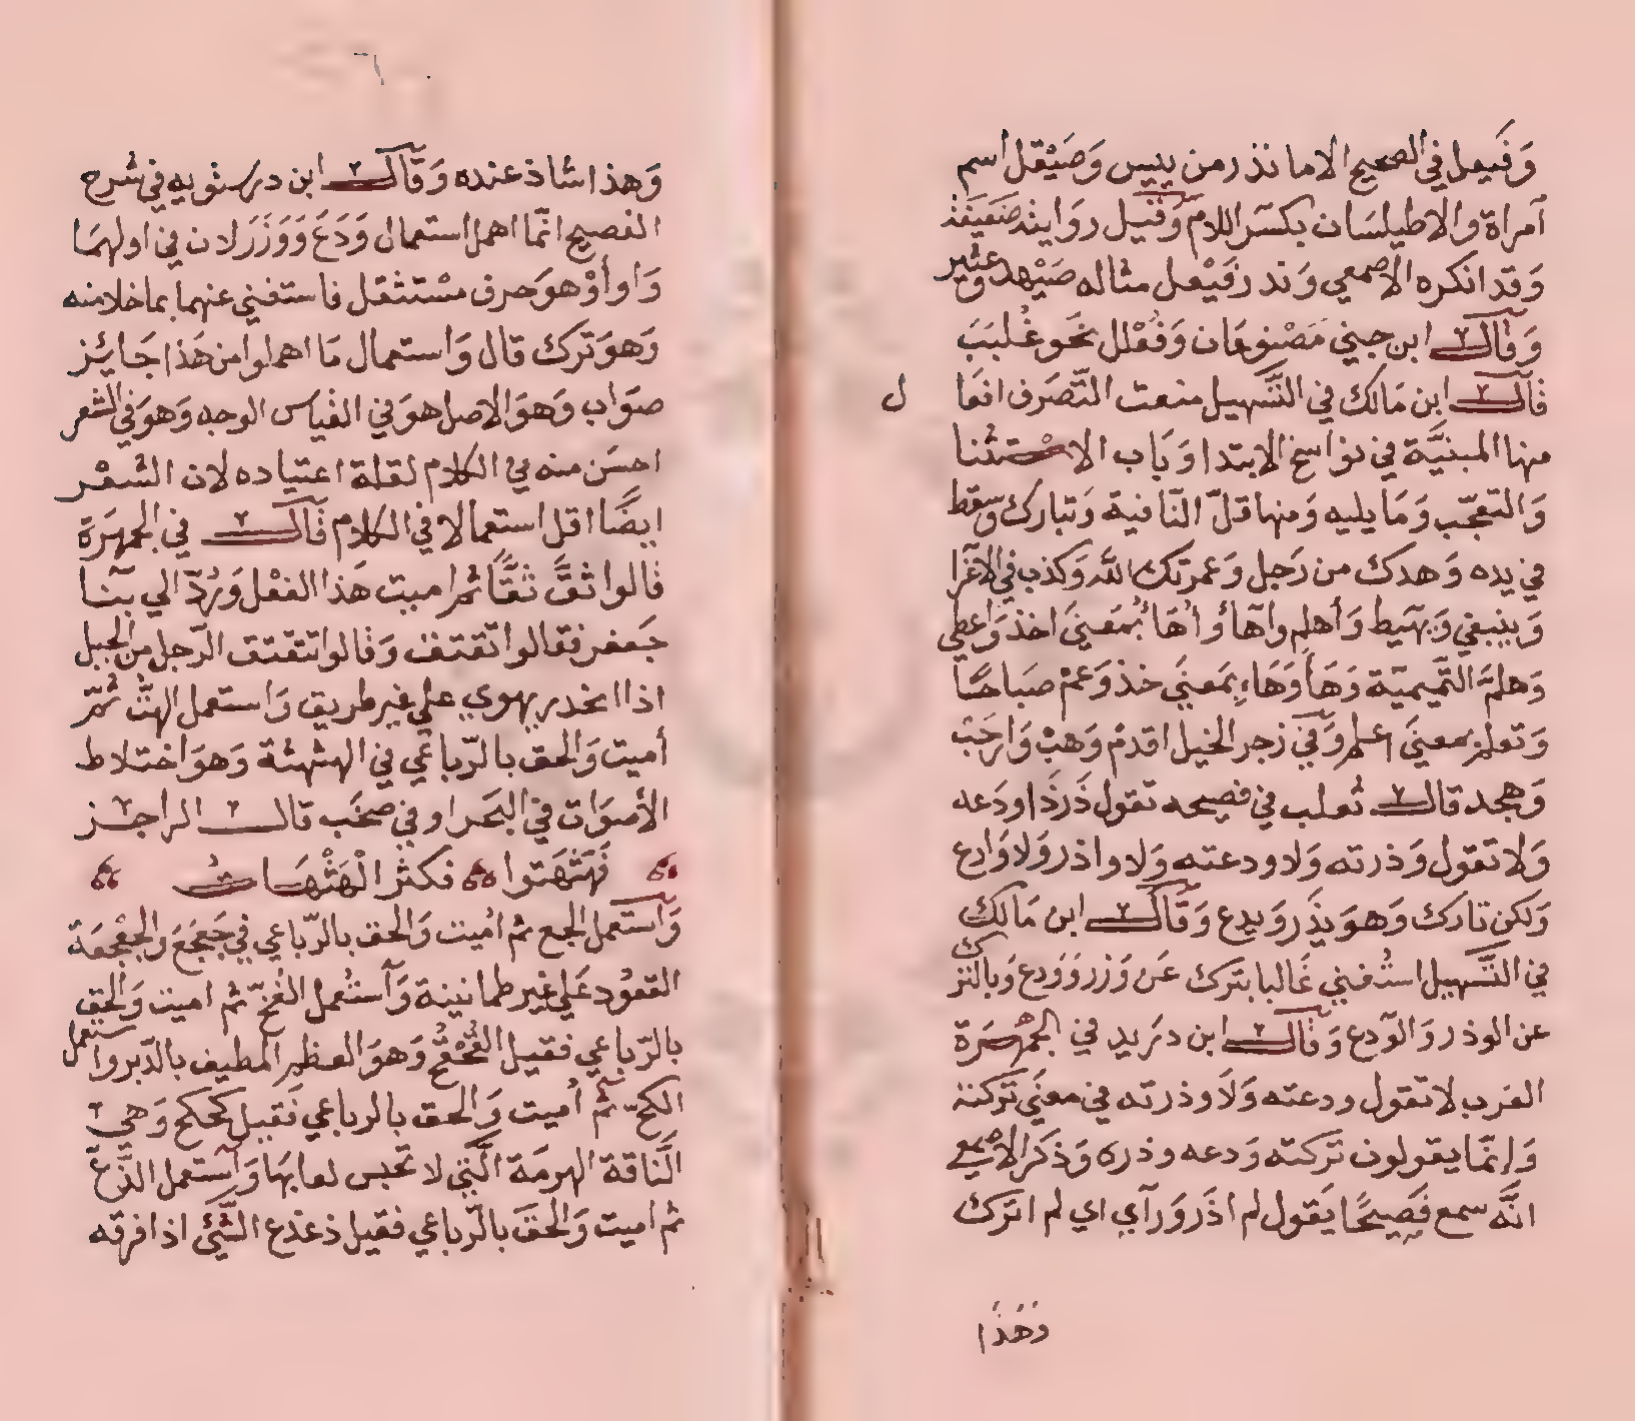 وَفَيعل في الصحيح الا ما نذر من بيس وَصَيْقل اسم
آمراة والا طيلسَان بكسَر اللام وقيل روايته ضَعيفة
وَقد انكره الاصمعي وَندر فَيْعل مثاله صَيْهد وعثير
وَقالــ ابن جني مَصْنوعَان وَفُعْلل نحو غُلبَبَ
قالــ ابن مَالك في التَّسهيل منعت التّصَرف افعَا ل
منها المبنيَّة في نواسخ الابتدا وَبَاب الاسْتثنا
وَالتعجّب وَمَا يليه وَمنها قلّ النّافية وَتبارك وَسقط
في يده وَهدك من رَجل وَعمرتك الله وَكذب في الاغرا
وَينبغي وَيهَيط وَأهلم وآهَا وأهَا بمعنَي اخذ وَاعطي
وَهلمَّ التَّميميّة وَهَأ وَهَاءِ بمَعنَي خذ وَعمْ صبَاحًا
وَتعلم بمعنَي اعلم وَفي زجر الخيل اقدمْ وَهبْ وَارحَبْ
وَهجد قالــ ثعلب في فصيحه تقول ذَرذَا ودَعه
وَلا تقول وَذرته وَلا ودعته وَلا واذر وَلا وَادع
وَلكن تارك وَهوَ يذَر وَيدع وَقالــ ابن مَالك
في التَّسهيل استُغني غَالبا بترك عَن وَزر وَوَدع وَبالترك
عن الوذر وَالوَدع وَقالــ ابن دَريد في الجمْهَرَة
العَرب لا تقول ودعته وَلاَ وذرته في معنَي تَركته
وَإنمّا يقولون تَركته وَدعه وذره وَذكَر الاصْمعي
انَّه سمع فَصيحًا يَقول لم اذَر وَرآي اي لم اترك
وَهَذَا
وَهذا شاذ عنده وَقالــ ابن درَستويه في شرح
الفصيح انّما اهمل استعمال وَدَعَ وَوَزَرَ لان في اولهمَا
وَاو أوْ هوَ حرف مسْتثقل فاستغني عنهما بما خلا منه
وَهوَ تَرك قال وَاستعمال مَا اهملوا من هَذا جَايئز
صوَاب وَهوَ الاصل هوَ في القياس الوجه وَهوَ في الشعر
احسَن منه في الكلام لقلة اعتياده لان الشعْر
ايضًا اقل استعمالا في الكلام قالــ في الجمهَرَة
قالوا ثقَّ ثقًّا ثم اميت هَذا الفعْل وَرُدّ الي بنَا
جَعفر فقالوا تقتقف وَقالوا تتقتق الرّجل من الجبل
اذا انحدر يهوي علي غير طريق وَاستعمل الهثّ ثمّ
أميت وَالحق بالرّباعي في الهثهثة وَهوَ اختلاط
الأصوَات في البحَر او في صخَب قالــ الراجز
فَهَثْهَثوا فكثر الْهَثْهَاث
وَآستعمل الجع ثم اميت وَالحق بالرّباعي في جَعجَعَ وَالجعْجعَة
القعوُد عَلي غير طمانينة وَآستُعمل القخّ ثم اميت وَالحق
بالرّباعي فقيل القُحْقُح وَهوَ العظم المطيف بالدّبر واستعمل
الكحّ ثم أميت وَالحق بالرباعي فَقيل كحكح وَهي
النَّاقة الهرمَة الّتي لا تحبس لعابهَا وَآستعمل الذَّعّ
ثم اميت وَالحقَ بالرّباعي فقيل ذعذع الشَّيْ اذا فرقه